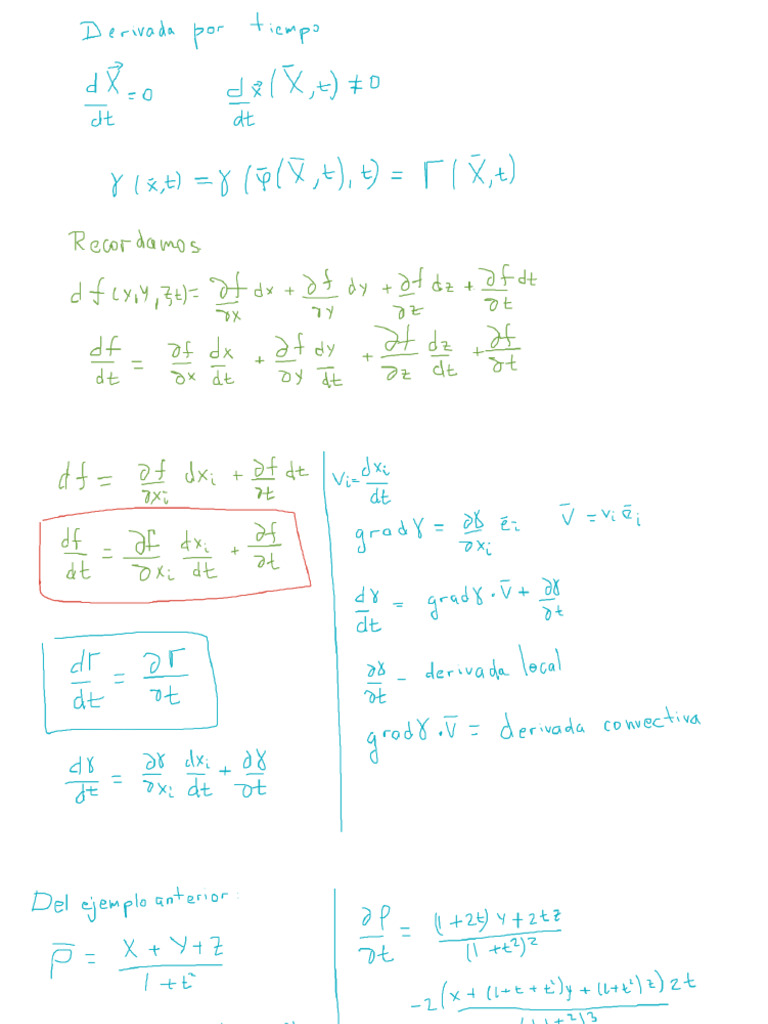 Derivada por tiempo
dX⃗/dt = 0    d x⃗(X̄,t)/dt ≠ 0
γ(x̄,t) = γ(φ̄(X̄,t),t) = Γ(X̄,t)
Recordamos
df(x,y,z,t) = ∂f/∂x dx + ∂f/∂y dy + ∂f/∂z dz + ∂f/∂t dt
df/dt = ∂f/∂x dx/dt + ∂f/∂y dy/dt + ∂f/∂z dz/dt + ∂f/∂t
df = ∂f/∂xi dxi + ∂f/∂t dt
df/dt = ∂f/∂xi dxi/dt + ∂f/∂t
dΓ/dt = ∂Γ/∂t
dγ/dt = ∂γ/∂xi dxi/dt + ∂γ/∂t
vi = dxi/dt
gradγ = ∂γ/∂xi ēi    v̄ = vi ēi
dγ/dt = gradγ · v̄ + ∂γ/∂t
∂γ/∂t - derivada local
gradγ · v̄ = derivada convectiva
Del ejemplo anterior:
P̄ = X + Y + Z / 1 + t²
∂ρ/∂t = (1+2t)y + 2tz / (1+t²)²
-2(x + (1+t+t²)y + (1+t²)z)2t